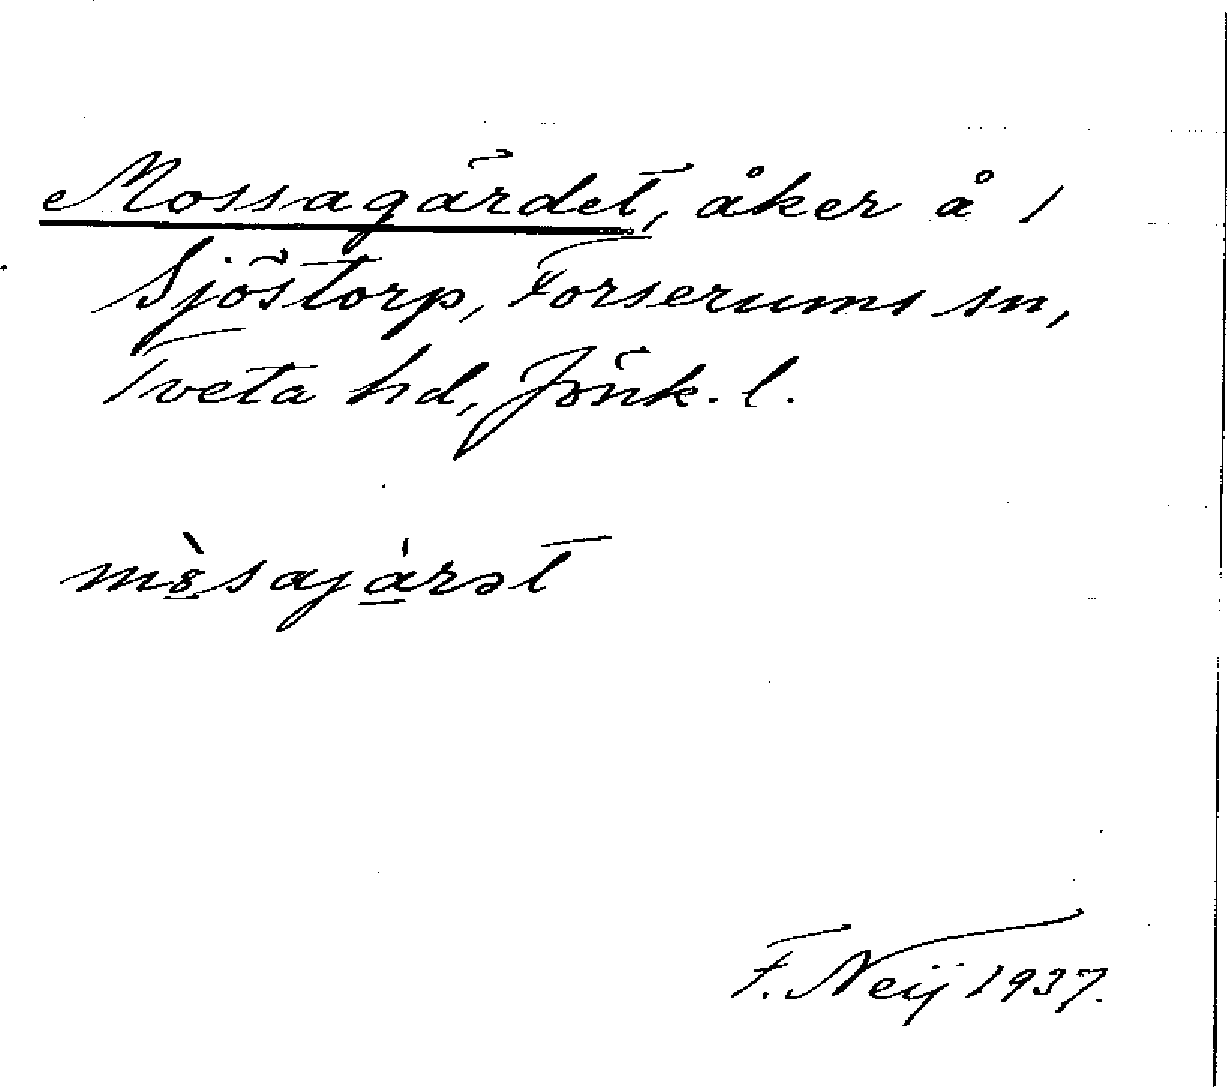 Mossagärdet, åker å 1
Sjöstorp, Forserums sn,
Tveta hd, Jönk. l.
mòsajárət
F. Neij 1937.